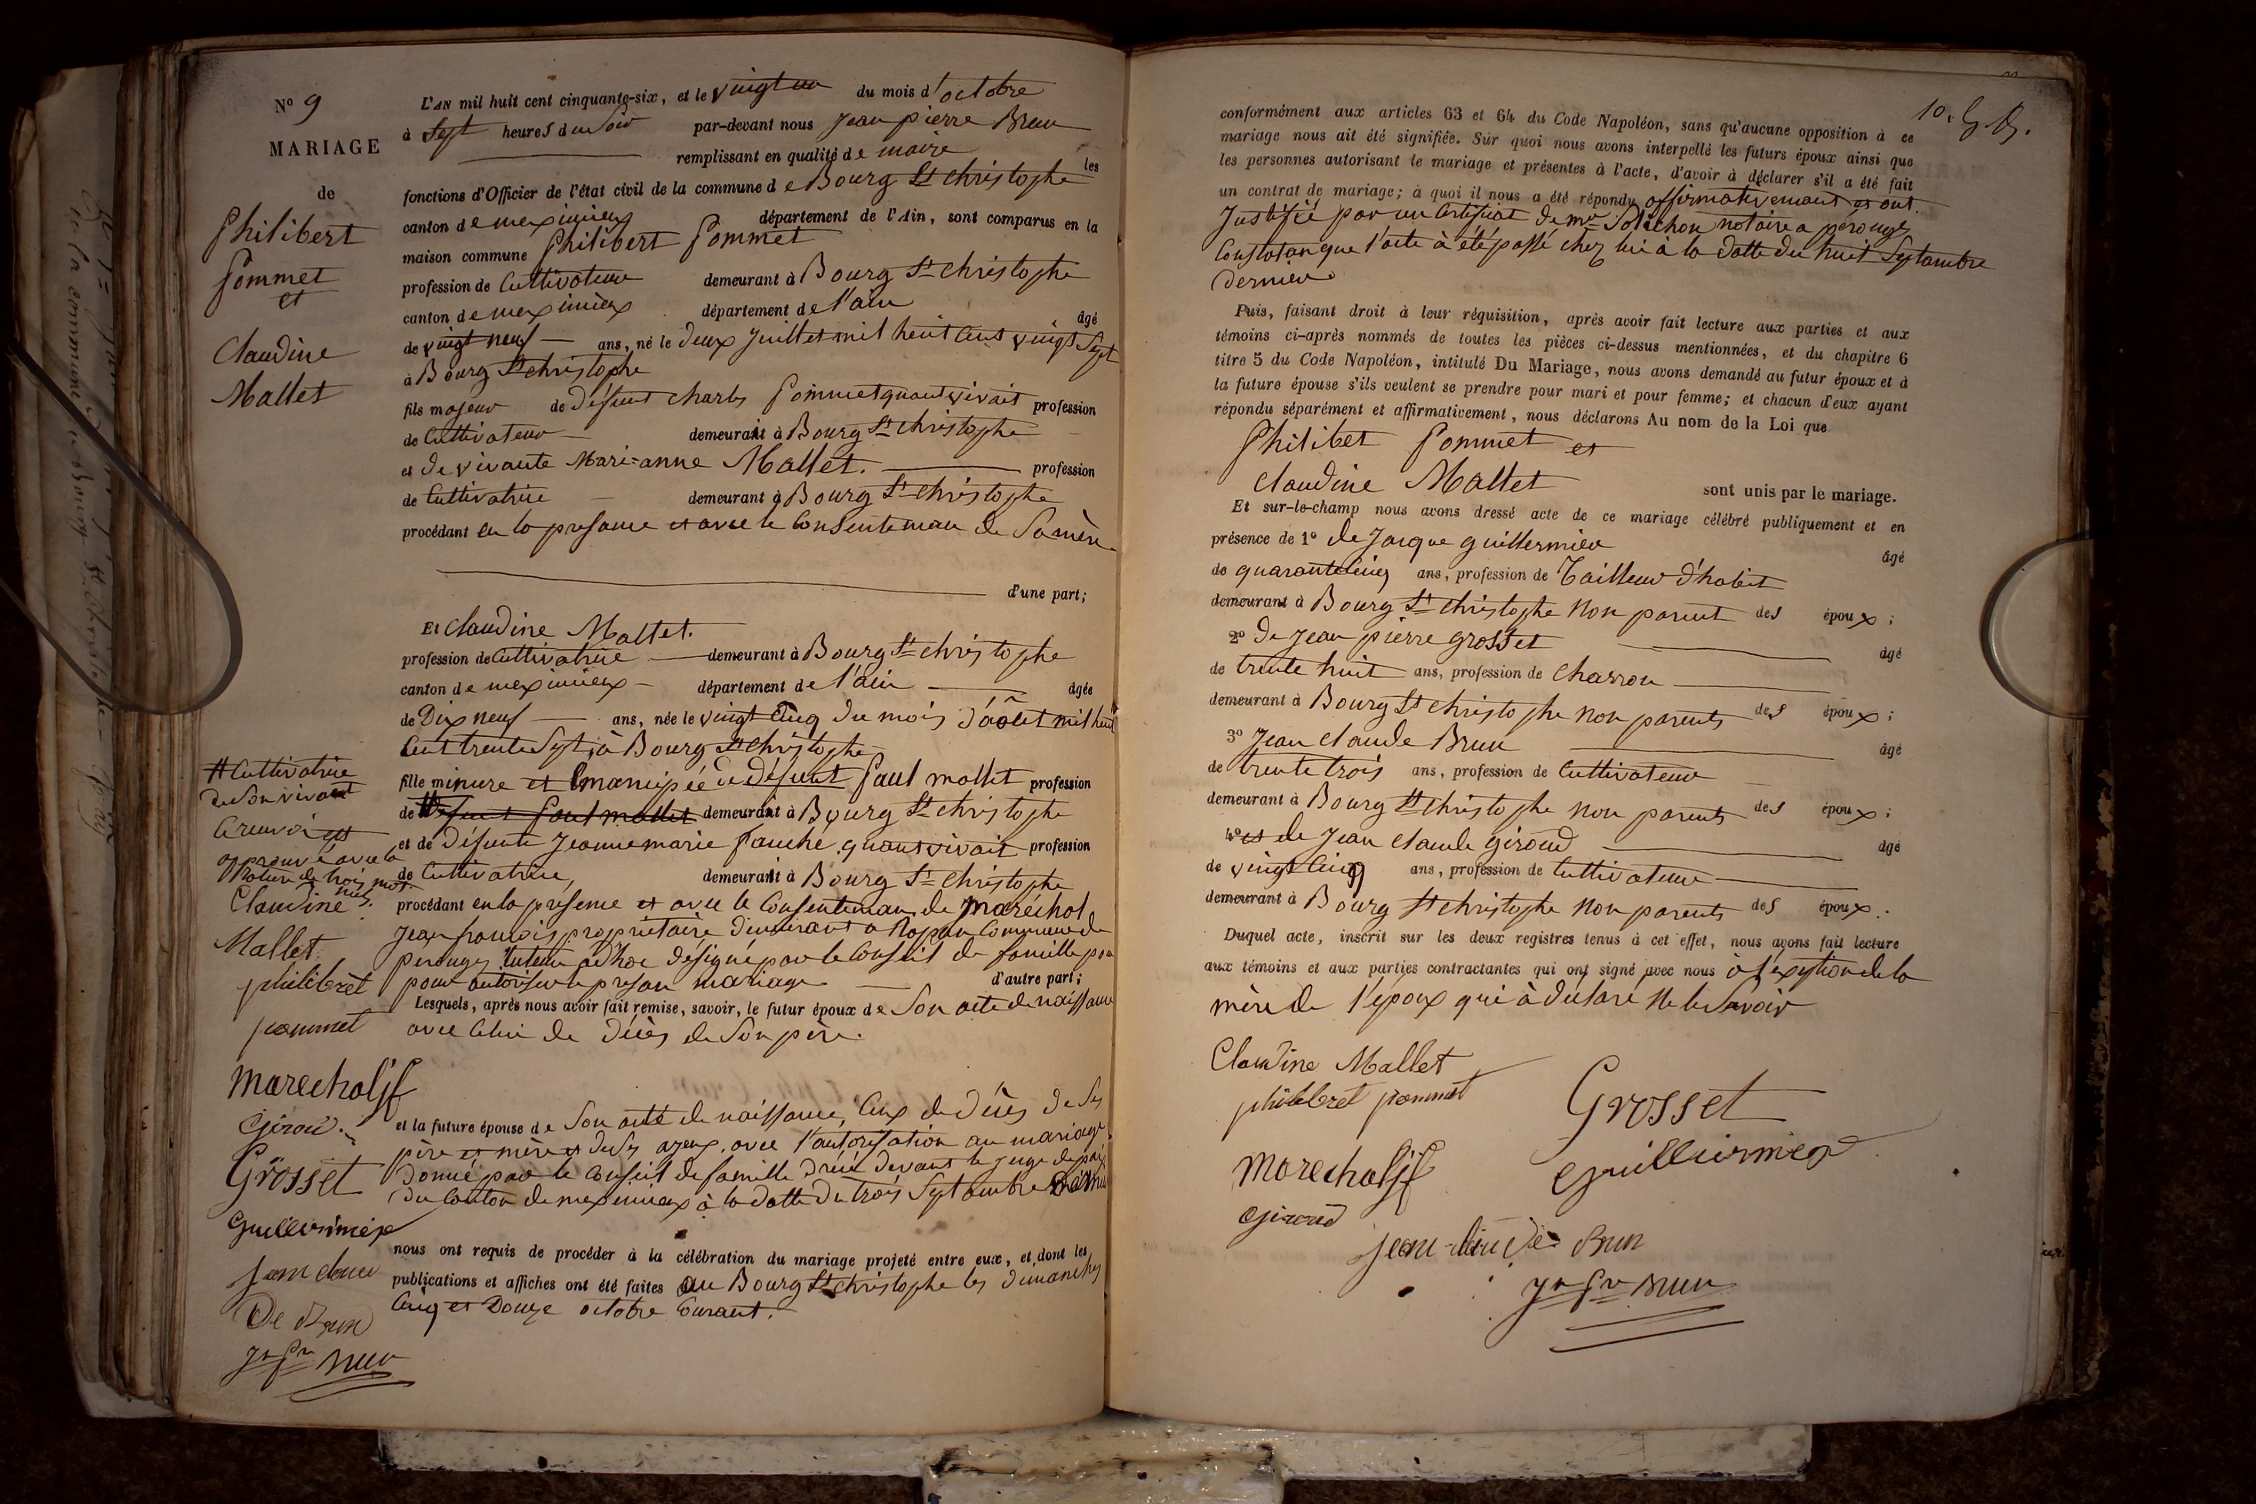 N° 9
MARIAGE
de
Philibert
Pommet
et
Claudine
Mallet
L'AN mil huit cent cinquante-six, et le vingt un du mois d'octobre
à Sept heures du Soir par-devant nous Jean pierre Brun
remplissant en qualité de maire les
fonctions d'Officier de l'état civil de la commune de Bourg St christophe
canton de meximieux département de l'Ain, sont comparus en la
maison commune Philibert Pommet
profession de Cultivateur demeurant à Bourg St christophe
canton de meximieux département de l'ain âgé
de vingt neuf ans, né le deux Juillet mil huit Cent vingt Sept
à Bourg St christophe
fils majeur de Défunt charles Pommet quant vivait profession
de Cultivateur demeurait à Bourg St christophe
et de vivante Marie-anne Mallet. profession
de Cultivatrice demeurant à Bourg St christophe
procédant en la presance et avec le Consenteman de Sa mère
d'une part;
Et claudine Mallet.
profession de Cultivatrice demeurant à Bourg St christophe
canton de meximieux département de l'ain âgée
de Dix neuf ans, née le vingt Cinq du mois d'août mil huit
Cent trente Sept, à Bourg St christophe
fille mineure et Emancipée de défunt Paul mallet profession
de défunt Paul mallet demeurant à Bourg St christophe
et de Défunte Jeanne marie fauché, quant vivait profession
de Cultivatrice, demeurait à Bourg St christophe
procédant en la présence et avec le Consenteman de Maréchal
Jean francois propriétaire demeurant a Rapan Commune de
perouges tuteur adhoc désigné par le Conseil de famille pour
pour autoriser le presan mariage d'autre part;
Lesquels, après nous avoir fait remise, savoir, le futur époux de Son acte de naissance
avec Celui de Décès de Son père.
et la future épouse de Son acte de naissance, Ceux de Décès de Ses
père et mère et de Ses ayeux, avec l'autorisation au mariage
Donné par le Conseil de famille devant le juge de paix
du Canton de meximieux à la datte du trois Septembre
nous ont requis de procéder à la célébration du mariage projeté entre eux, et dont les
publications et affiches ont été faites au Bourg St christophe les dimanches
Cinq et Douze octobre Courant.
Cultivatrice
de Son vivant
approuvé avec la
Rature de trois mots
nuls
Claudine
Mallet
philibert
pommet
Marechal jf
Giroud
Grosset
Guillermier
jean clau
De Brun
Jn Pre Brun
10.
conformément aux articles 63 et 64 du Code Napoléon, sans qu'aucune opposition à ce
mariage nous ait été signifiée. Sur quoi nous avons interpellé les futurs époux ainsi que
les personnes autorisant le mariage et présentes à l'acte, d'avoir à déclarer s'il a été fait
un contrat de mariage; à quoi il nous a été répondu affirmativemant et ont
Justifié par un Certificat de mre notaire a pérouges
Constatan que l'acte à été passé chez lui à la datte du huit Septambre
dernier
Puis, faisant droit à leur réquisition, après avoir fait lecture aux parties et aux
témoins ci-après nommés de toutes les pièces ci-dessus mentionnées, et du chapitre 6
titre 5 du Code Napoléon, intitulé Du Mariage, nous avons demandé au futur époux et à
la future épouse s'ils veulent se prendre pour mari et pour femme; et chacun d'eux ayant
répondu séparément et affirmativement, nous déclarons Au nom de la Loi que
Philibet Pommet et
claudine Mallet sont unis par le mariage.
Et sur-le-champ nous avons dressé acte de ce mariage célébré publiquement et en
présence de 1° de Jacque guillermier âgé
de quarante Cinq ans, profession de Tailleur d'habit
demeurant à Bourg St christophe non parent des époux;
2° de Jean pierre grosset âgé
de trente huit ans, profession de charron
demeurant à Bourg St christophe non parents des époux;
3° Jean claude Brun âgé
de trente trois ans, profession de Cultivateur
demeurant à Bourg St christophe non parents des époux;
4° et de Jean claude giroud âgé
de vingt Cinq ans, profession de Cultivateur
demeurant à Bourg St christophe non parents des époux.
Duquel acte, inscrit sur les deux registres tenus à cet effet, nous avons fait lecture
aux témoins et aux parties contractantes qui ont signé avec nous à l'exeption de la
mère de l'époux qui à déclaré ne le Savoir
Claudine Mallet
philibret pommet
Grosset
Marechal jf
Guilliermier
Giroud
jean-claude Brun
Jn Pre Brun